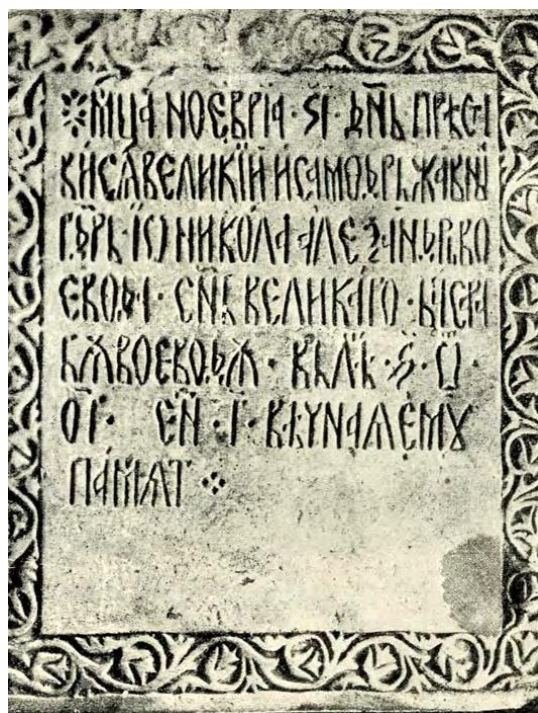 м҃ца́ ноеврїа · ѕ҃і · дн҃ь прѣсті
висѧ великїй и самодрьжавнꙑ
г҃дрь · їѡ никола алеѯандрь во
евода · сн҃ь великаго · басара
бѫ воеводѫ · вь лѣ҃ · ҂ѕ · ѡ҃
о҃г · ен҃ · г҃ · вѣчнаѧ емꙋ
памѧт ⁘